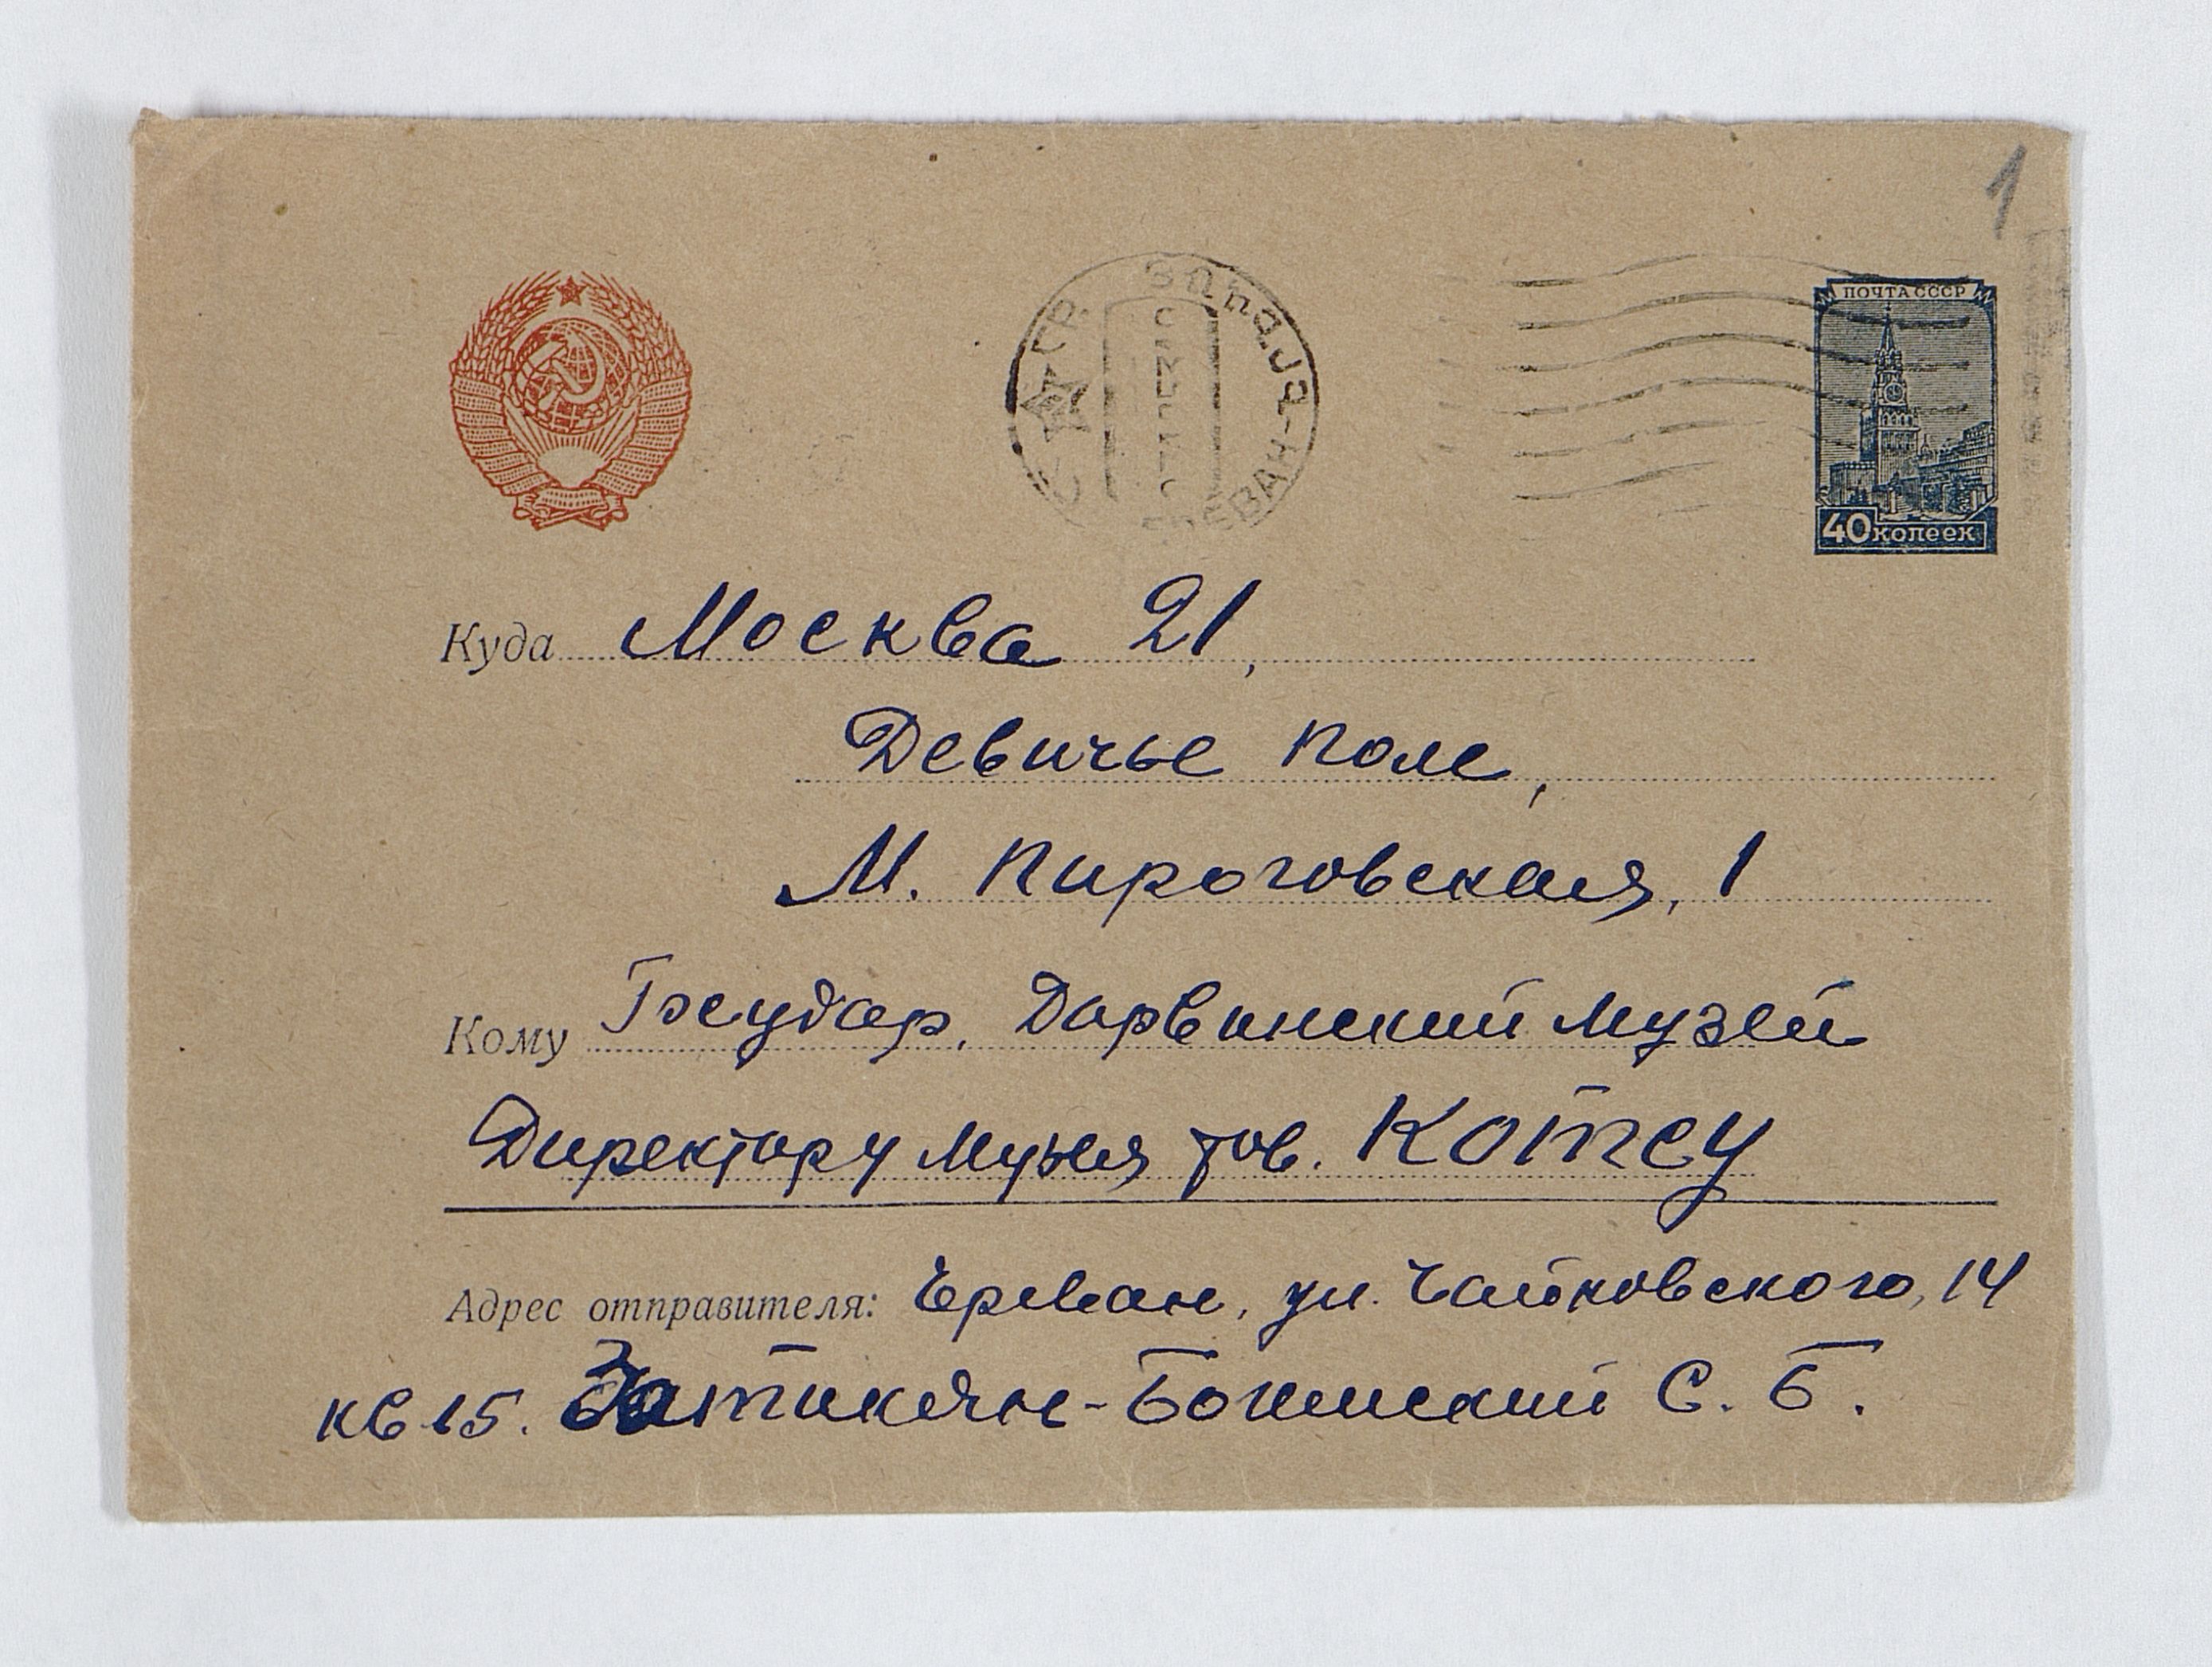 1
ПОЧТА СССР
40 копеек
ЕРЕВАН
Куда Москва 21,
Девичье поле,
М. Пироговская, 1
Кому Государ. Дарвинский музей
Директору музея тов. Котсу
Адрес отправителя: Ереван, ул. Чайковского, 14
кв 15. С. Б.